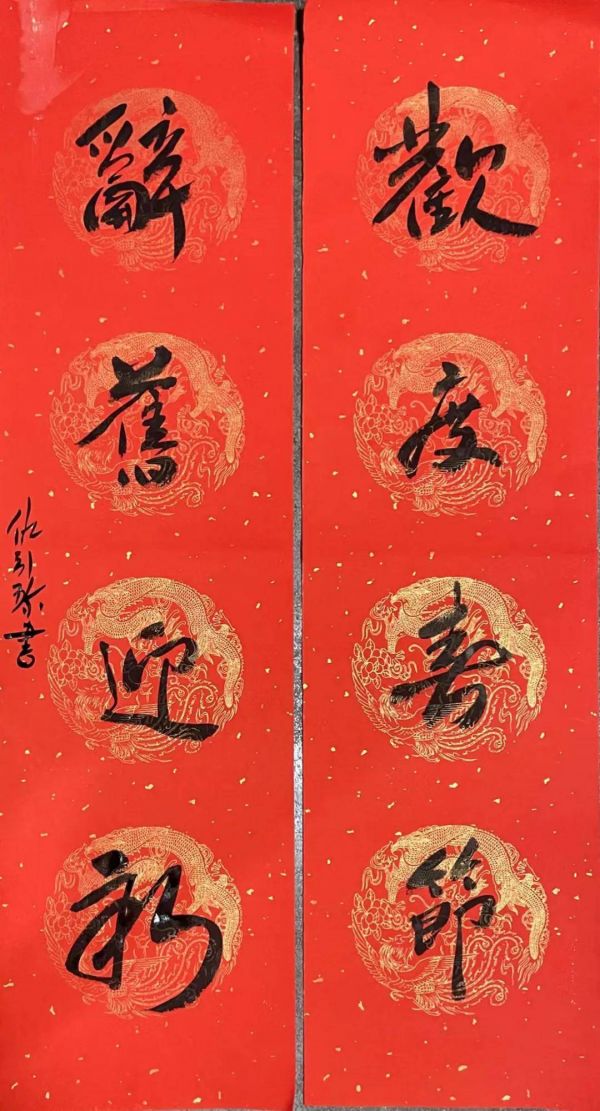 歡度春節
辭舊迎新
書